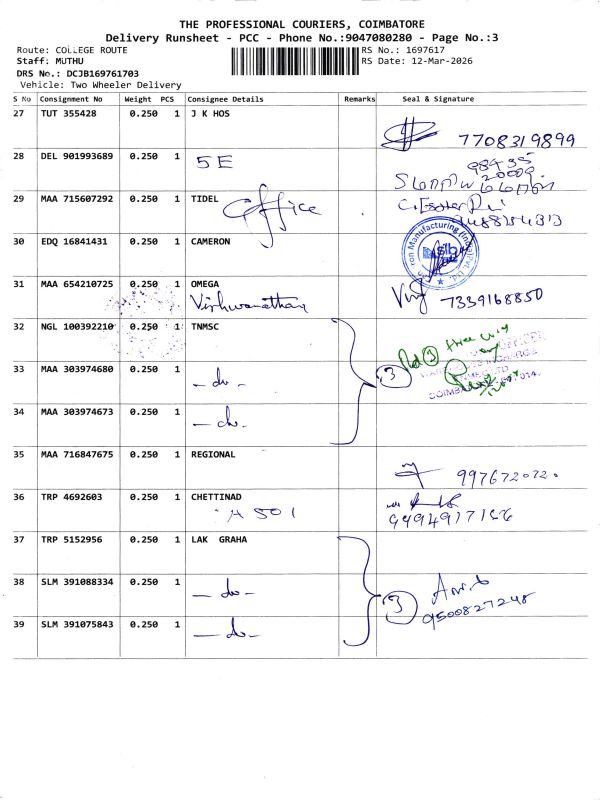 THE PROFESSIONAL COURIERS, COIMBATORE
Delivery Runsheet - PCC - Phone No.:9047080280 - Page No.:3
Route: COLLEGE ROUTE RS No.: 1697617
Staff: MUTHU RS Date: 12-Mar-2026
DRS No.: DCJB169761703
Vehicle: Two Wheeler Delivery
S No Consignment No Weight PCS Consignee Details Remarks Seal & Signature
27 TUT 355428 0.250 1 J K HOS
7708319899
28 DEL 901993689 0.250 1
5E
29 MAA 715607292 0.250 1 TIDEL
office
30 EDQ 16841431 0.250 1 CAMERON
31 MAA 654210725 0.250 1 OMEGA
Vishwanathan 7339168850
32 NGL 100392210 0.250 1 TNMSC
33 MAA 303974680 0.250 1
- do - 3
34 MAA 303974673 0.250 1
- do -
35 MAA 716847675 0.250 1 REGIONAL
997672072
36 TRP 4692603 0.250 1 CHETTINAD
A 501
37 TRP 5152956 0.250 1 LAK GRAHA
38 SLM 391088334 0.250 1
- do - 3
9500827248
39 SLM 391075843 0.250 1
- do -